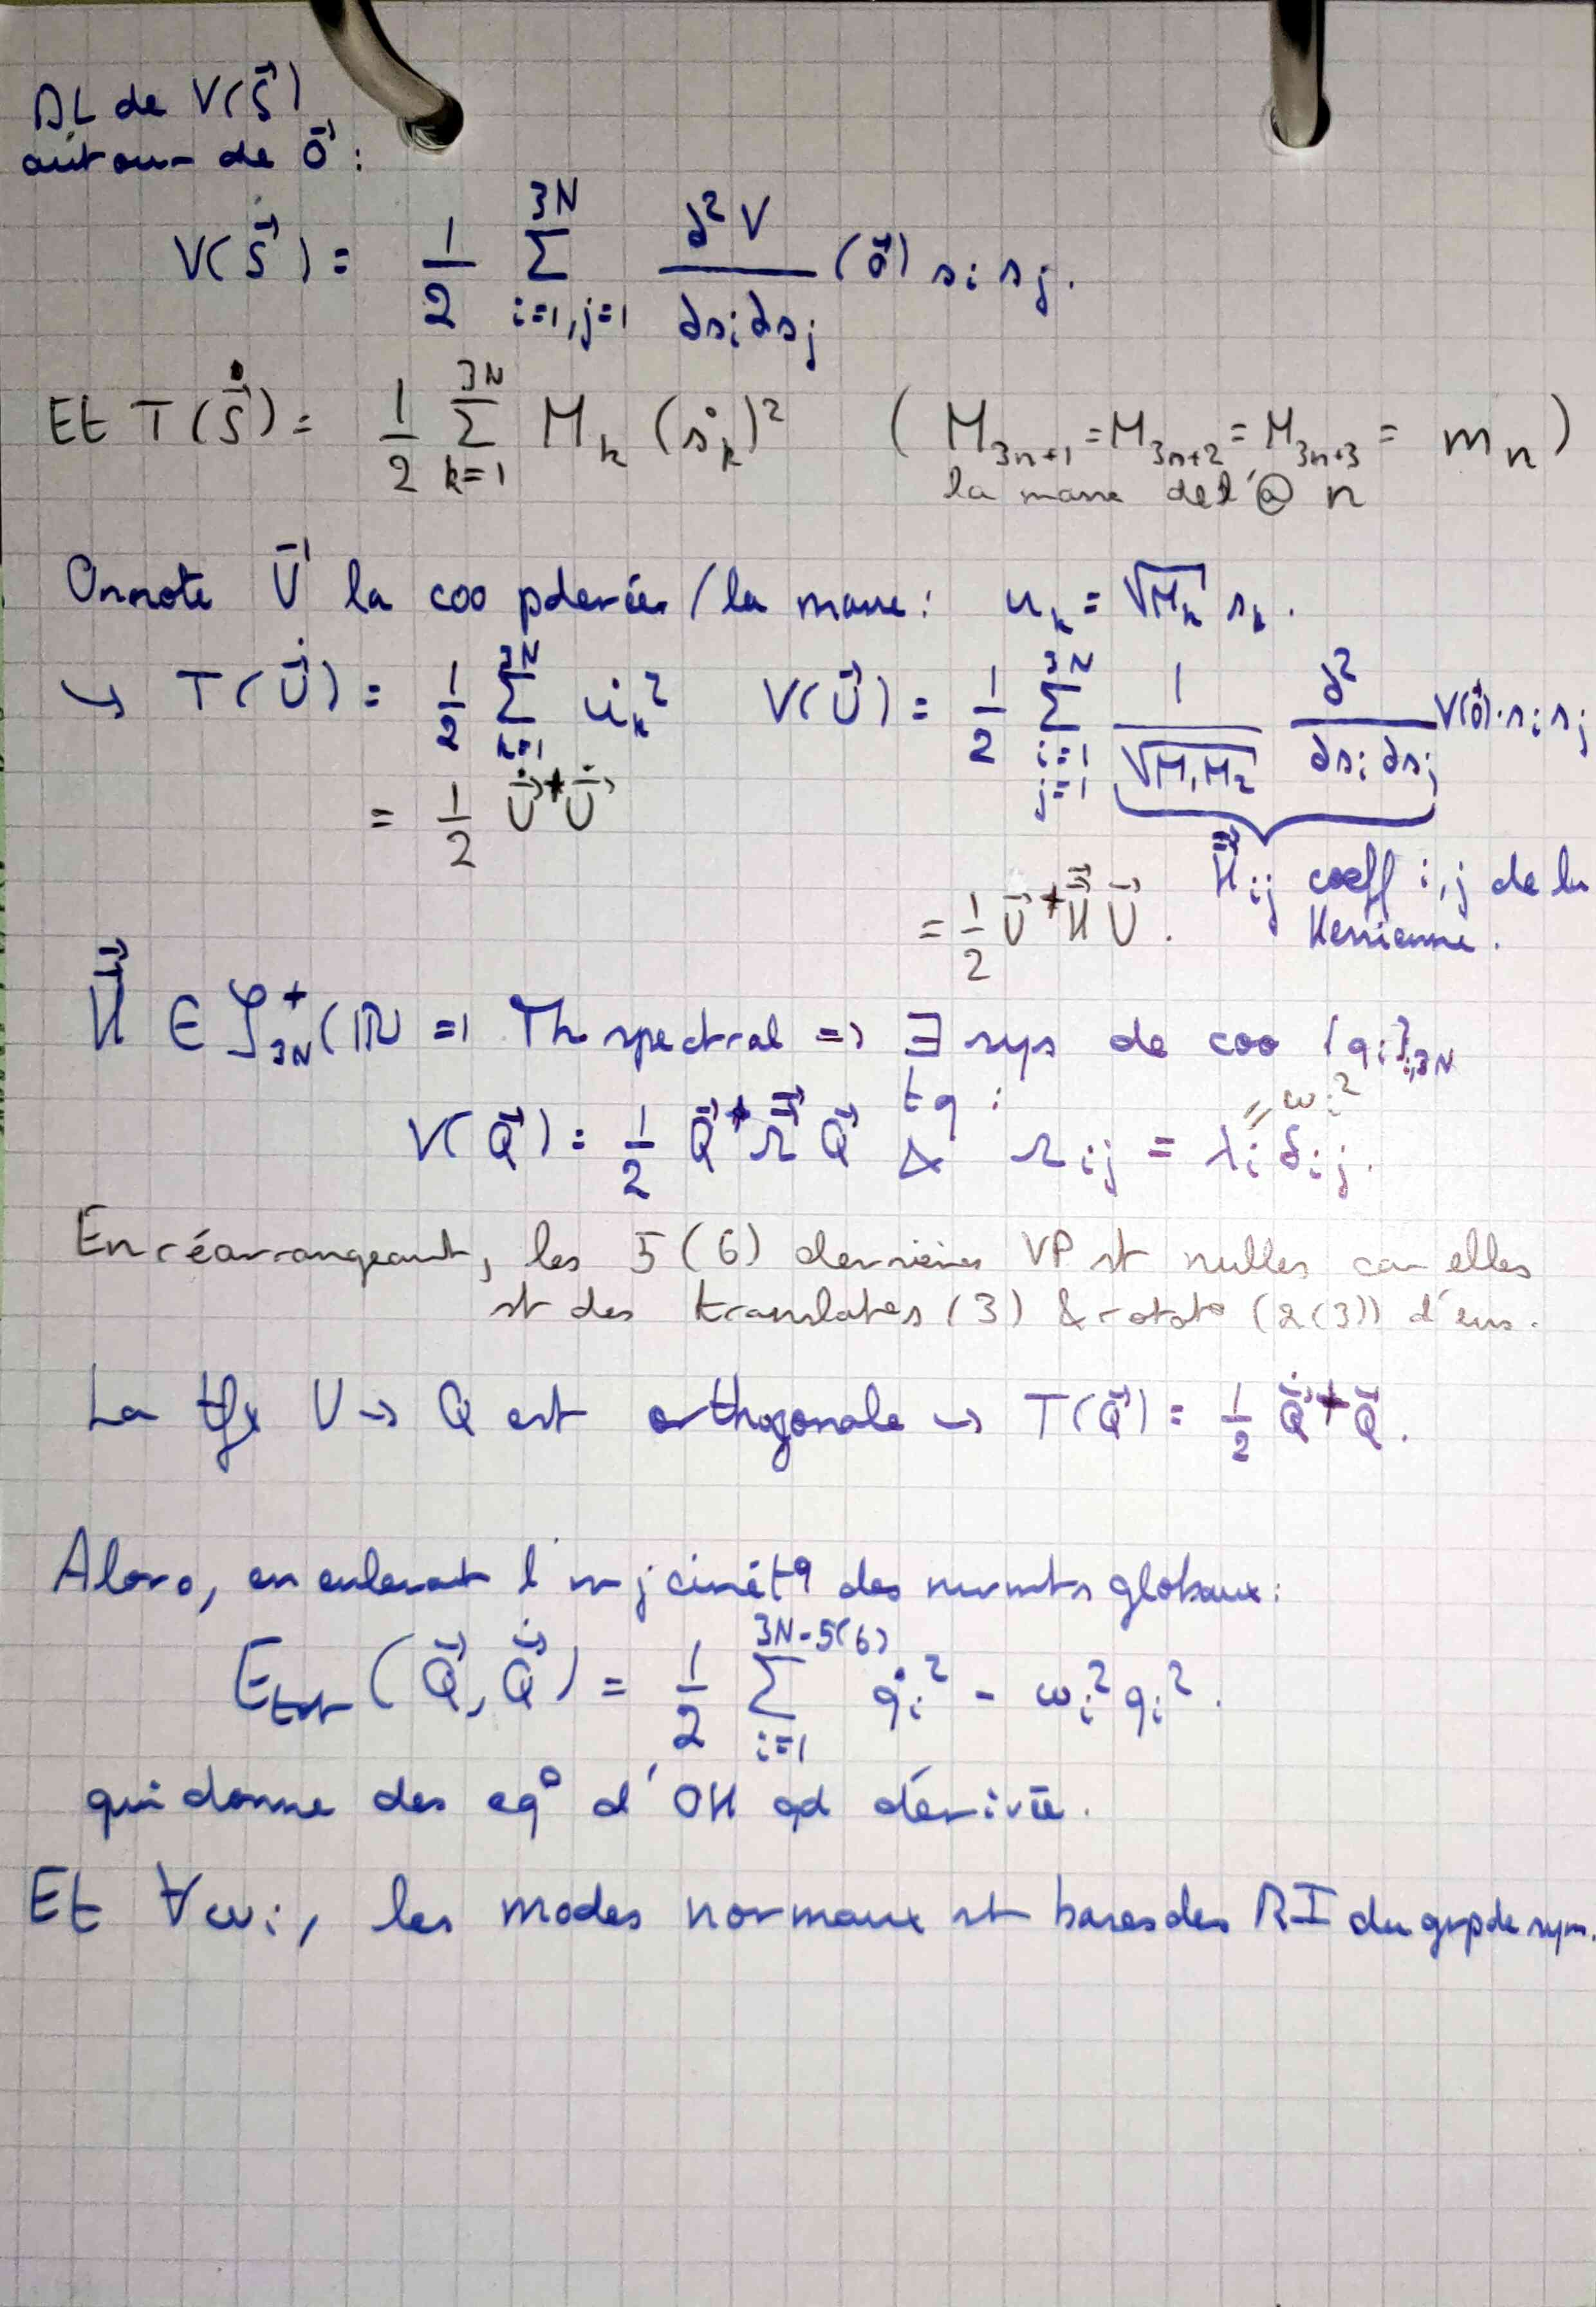 DL de V(S⃗)
autour de 0⃗ :
V(S⃗) = 1/2 Σ_{i=1,j=1}^{3N} ∂²V/∂s_i∂s_j (0⃗) s_i s_j.
Et T(S⃗̇) = 1/2 Σ_{k=1}^{3N} M_k (ṡ_k)² ( M_{3n+1} = M_{3n+2} = M_{3n+3} = m_n )
la masse de l'@ n
On note U⃗ la coo pderées / la masse : u_k = √M_k s_k.
↳ T(U⃗̇) = 1/2 Σ_{k=1}^{3N} u̇_k² V(U⃗) = 1/2 Σ_{i=1 j=1}^{3N} 1/√M₁M₂ ∂²/∂s_i∂s_j V(0⃗)·s_i s_j
= 1/2 U⃗̇⁺U⃗̇
H_ij coeff i,j de la
= 1/2 U⃗⁺ H U⃗. Hessienne.
H ∈ S⁺_{3N}(ℝ) => Th spectral => ∃ sys de coo {q_i}_{i,3N}
tq : = ω_i²
V(Q⃗) = 1/2 Q⃗⁺ Ω Q⃗ & Ω_ij = λ_i δ_ij.
En réarrangeant, les 5 (6) dernières VP st nulles car elles
st des translat°s (3) & rotat° (2(3)) d'ens.
La tfx U → Q est orthogonale → T(Q⃗) = 1/2 Q⃗̇⁺Q⃗̇.
Alors, en enlevant l'nrj cinétq des mvmts globaux :
E_tot (Q⃗, Q⃗̇) = 1/2 Σ_{i=1}^{3N-5(6)} q̇_i² - ω_i² q_i².
qui donne des eq° d'OH qd dérivée.
Et ∀ω_i, les modes normaux st bases des RI du grp de sym.